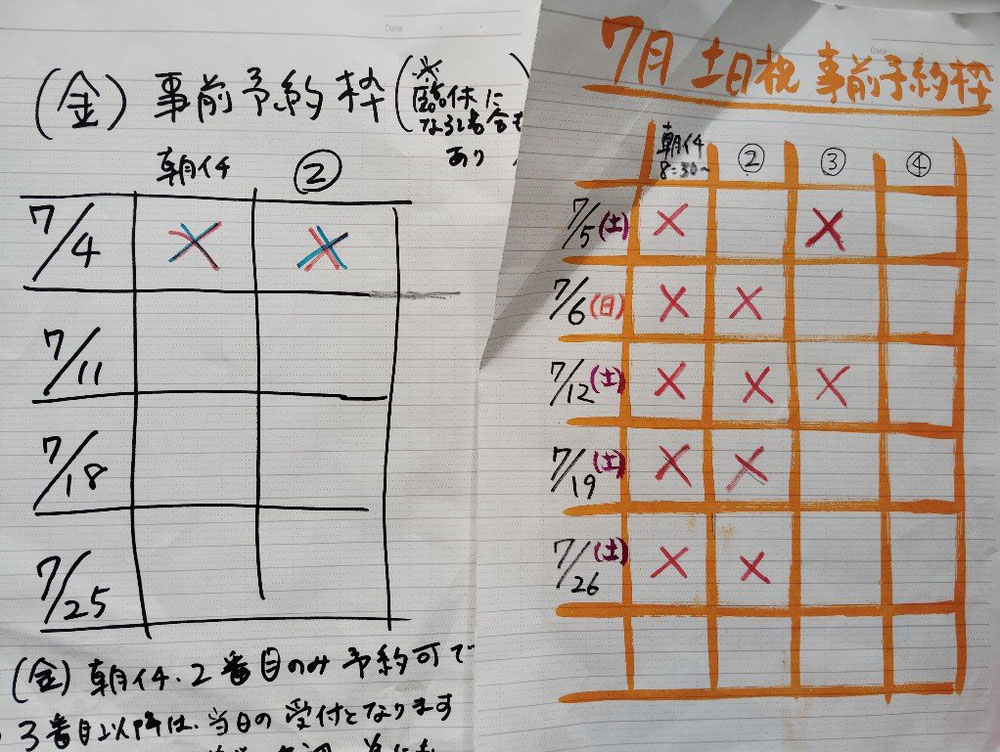 Date
(金) 事前予約枠 (※
臨休に
なる場合も
あり
朝イチ ②
7/4 × ×
7/11
7/18
7/25
(金) 朝イチ.2番目のみ予約可で
3番目以降は、当日の受付となります
Date
7月 土日祝 事前予約枠
朝イチ ② ③ ④
8:30~
7/5(土) × ×
7/6(日) × ×
7/12(土) × × ×
7/19(土) × ×
7/26(土) × ×